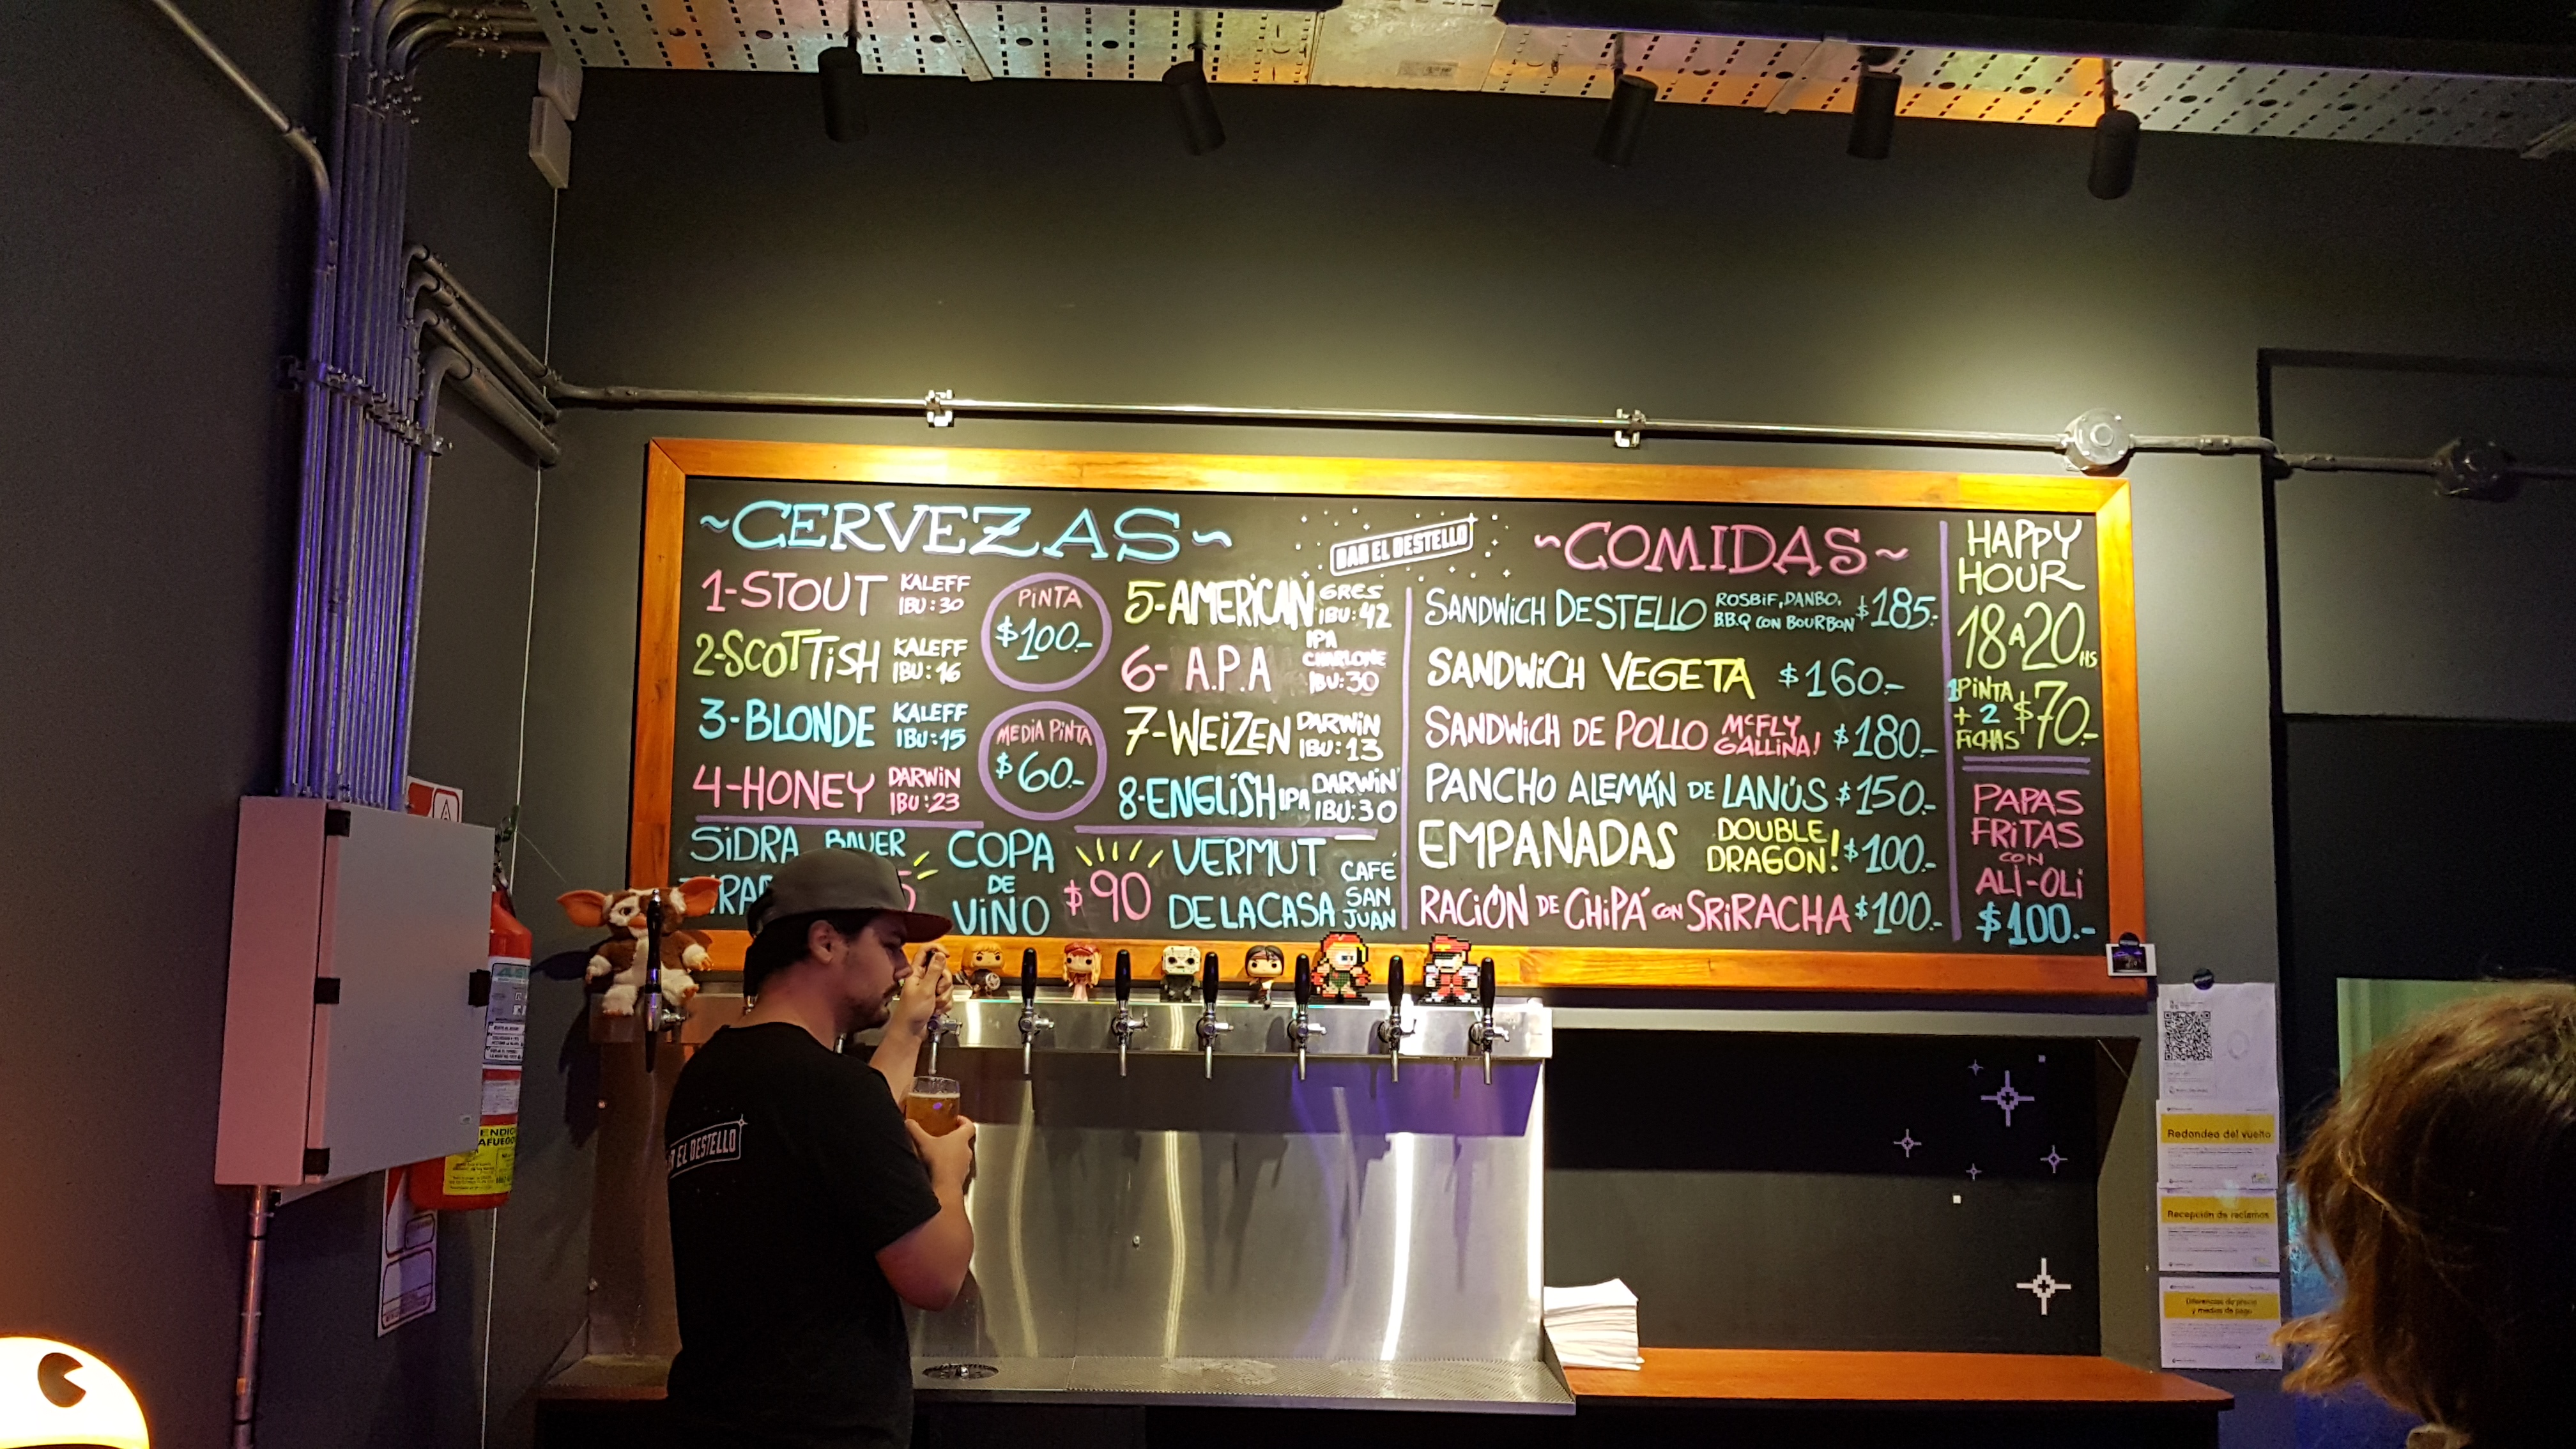 ~CERVEZAS~
1-STOUT KALEFF IBU:30
2-SCOTTISH KALEFF IBU:16
3-BLONDE KALEFF IBU:15
4-HONEY DARWIN IBU:23
PINTA
$100.-
MEDIA PINTA
$60.-
5-AMERICAN IPA GRES IBU:42
6- A.P.A CHARLONE IBU:30
7-WEIZEN DARWIN IBU:13
8-ENGLISH IPA DARWIN IBU:30
SIDRA BAUER
COPA
DE
VINO $90
VERMUT
DE LA CASA
CAFÉ
SAN
JUAN
BAR EL DESTELLO
~COMIDAS~
SANDWICH DESTELLO ROSBIF, DANBO, B.B.Q CON BOURBON $185.-
SANDWICH VEGETA $160.-
SANDWICH DE POLLO McFLY GALLINA! $180.-
PANCHO ALEMÁN DE LANÚS $150.-
EMPANADAS DOUBLE DRAGON! $100.-
RACIÓN DE CHIPÁ CON SRIRACHA $100.-
HAPPY
HOUR
18 A 20 HS
1 PINTA + 2 FICHAS $70.-
PAPAS
FRITAS
CON
ALI-OLI
$100.-
EL DESTELLO
Redondeo del vuelto
Recepción de reclamos
Diferencias de precio
y medios de pago